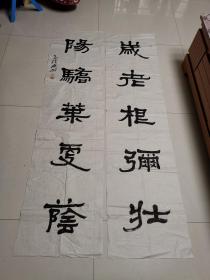 歲老根彌壮
陽驕葉更蔭